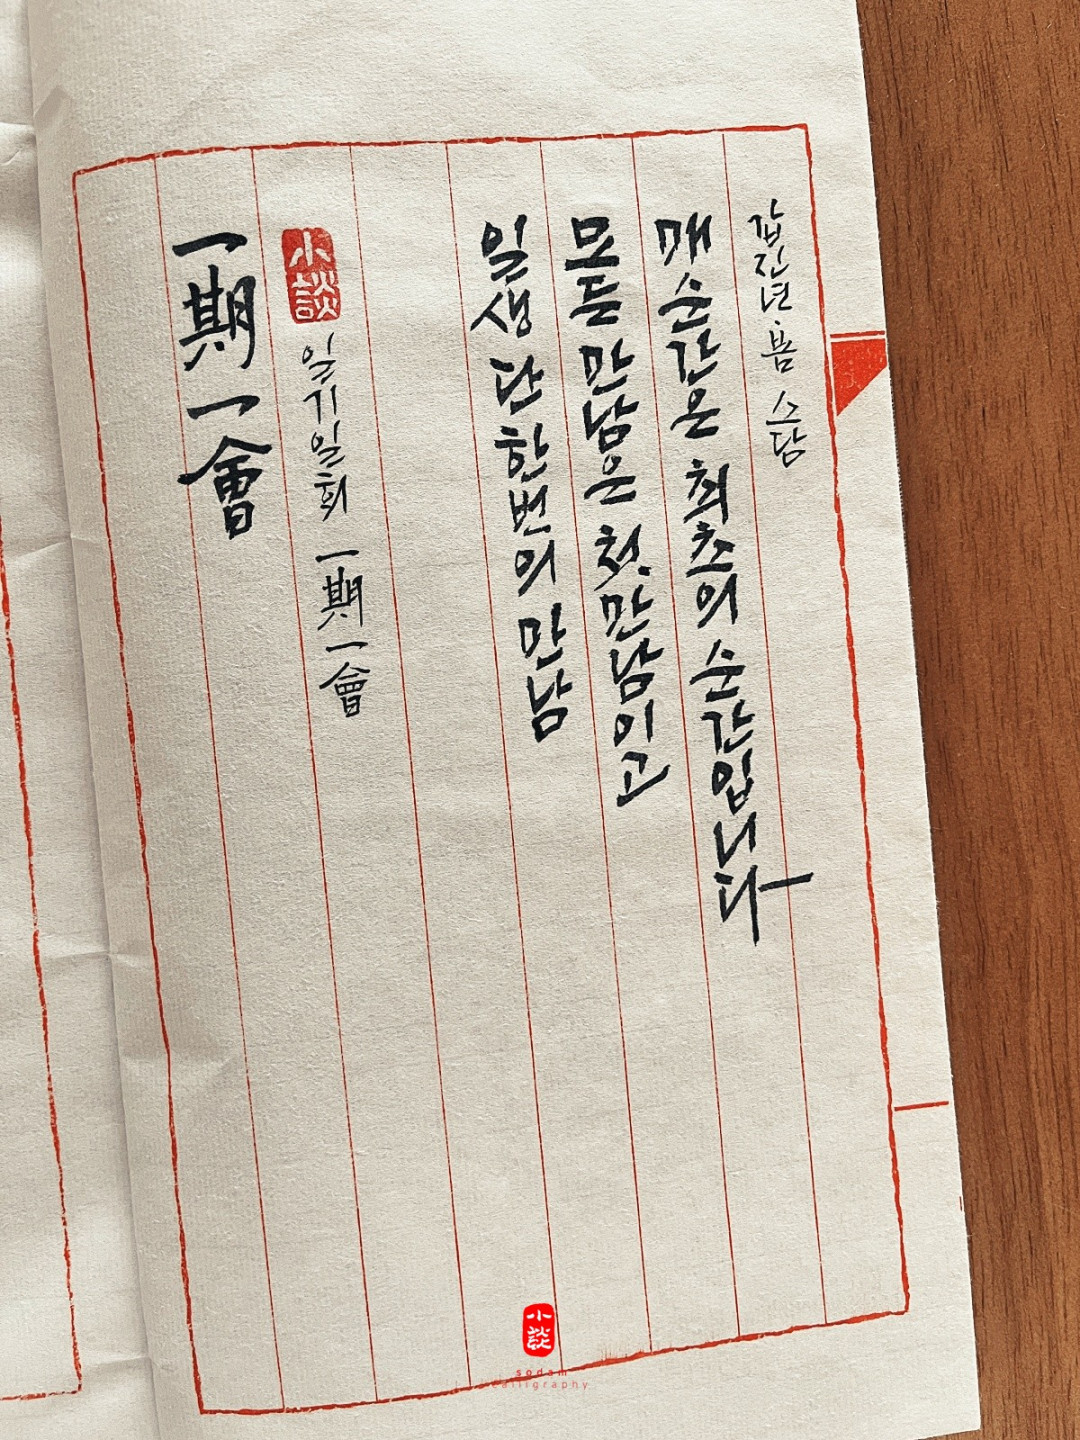 一期一會
小談
일기일회 一期一會
일생 단 한번의 만남
모든 만남은 첫 만남이고
매 순간은 최초의 순간입니다
갑진년 소담
小談
sodam
calligraphy